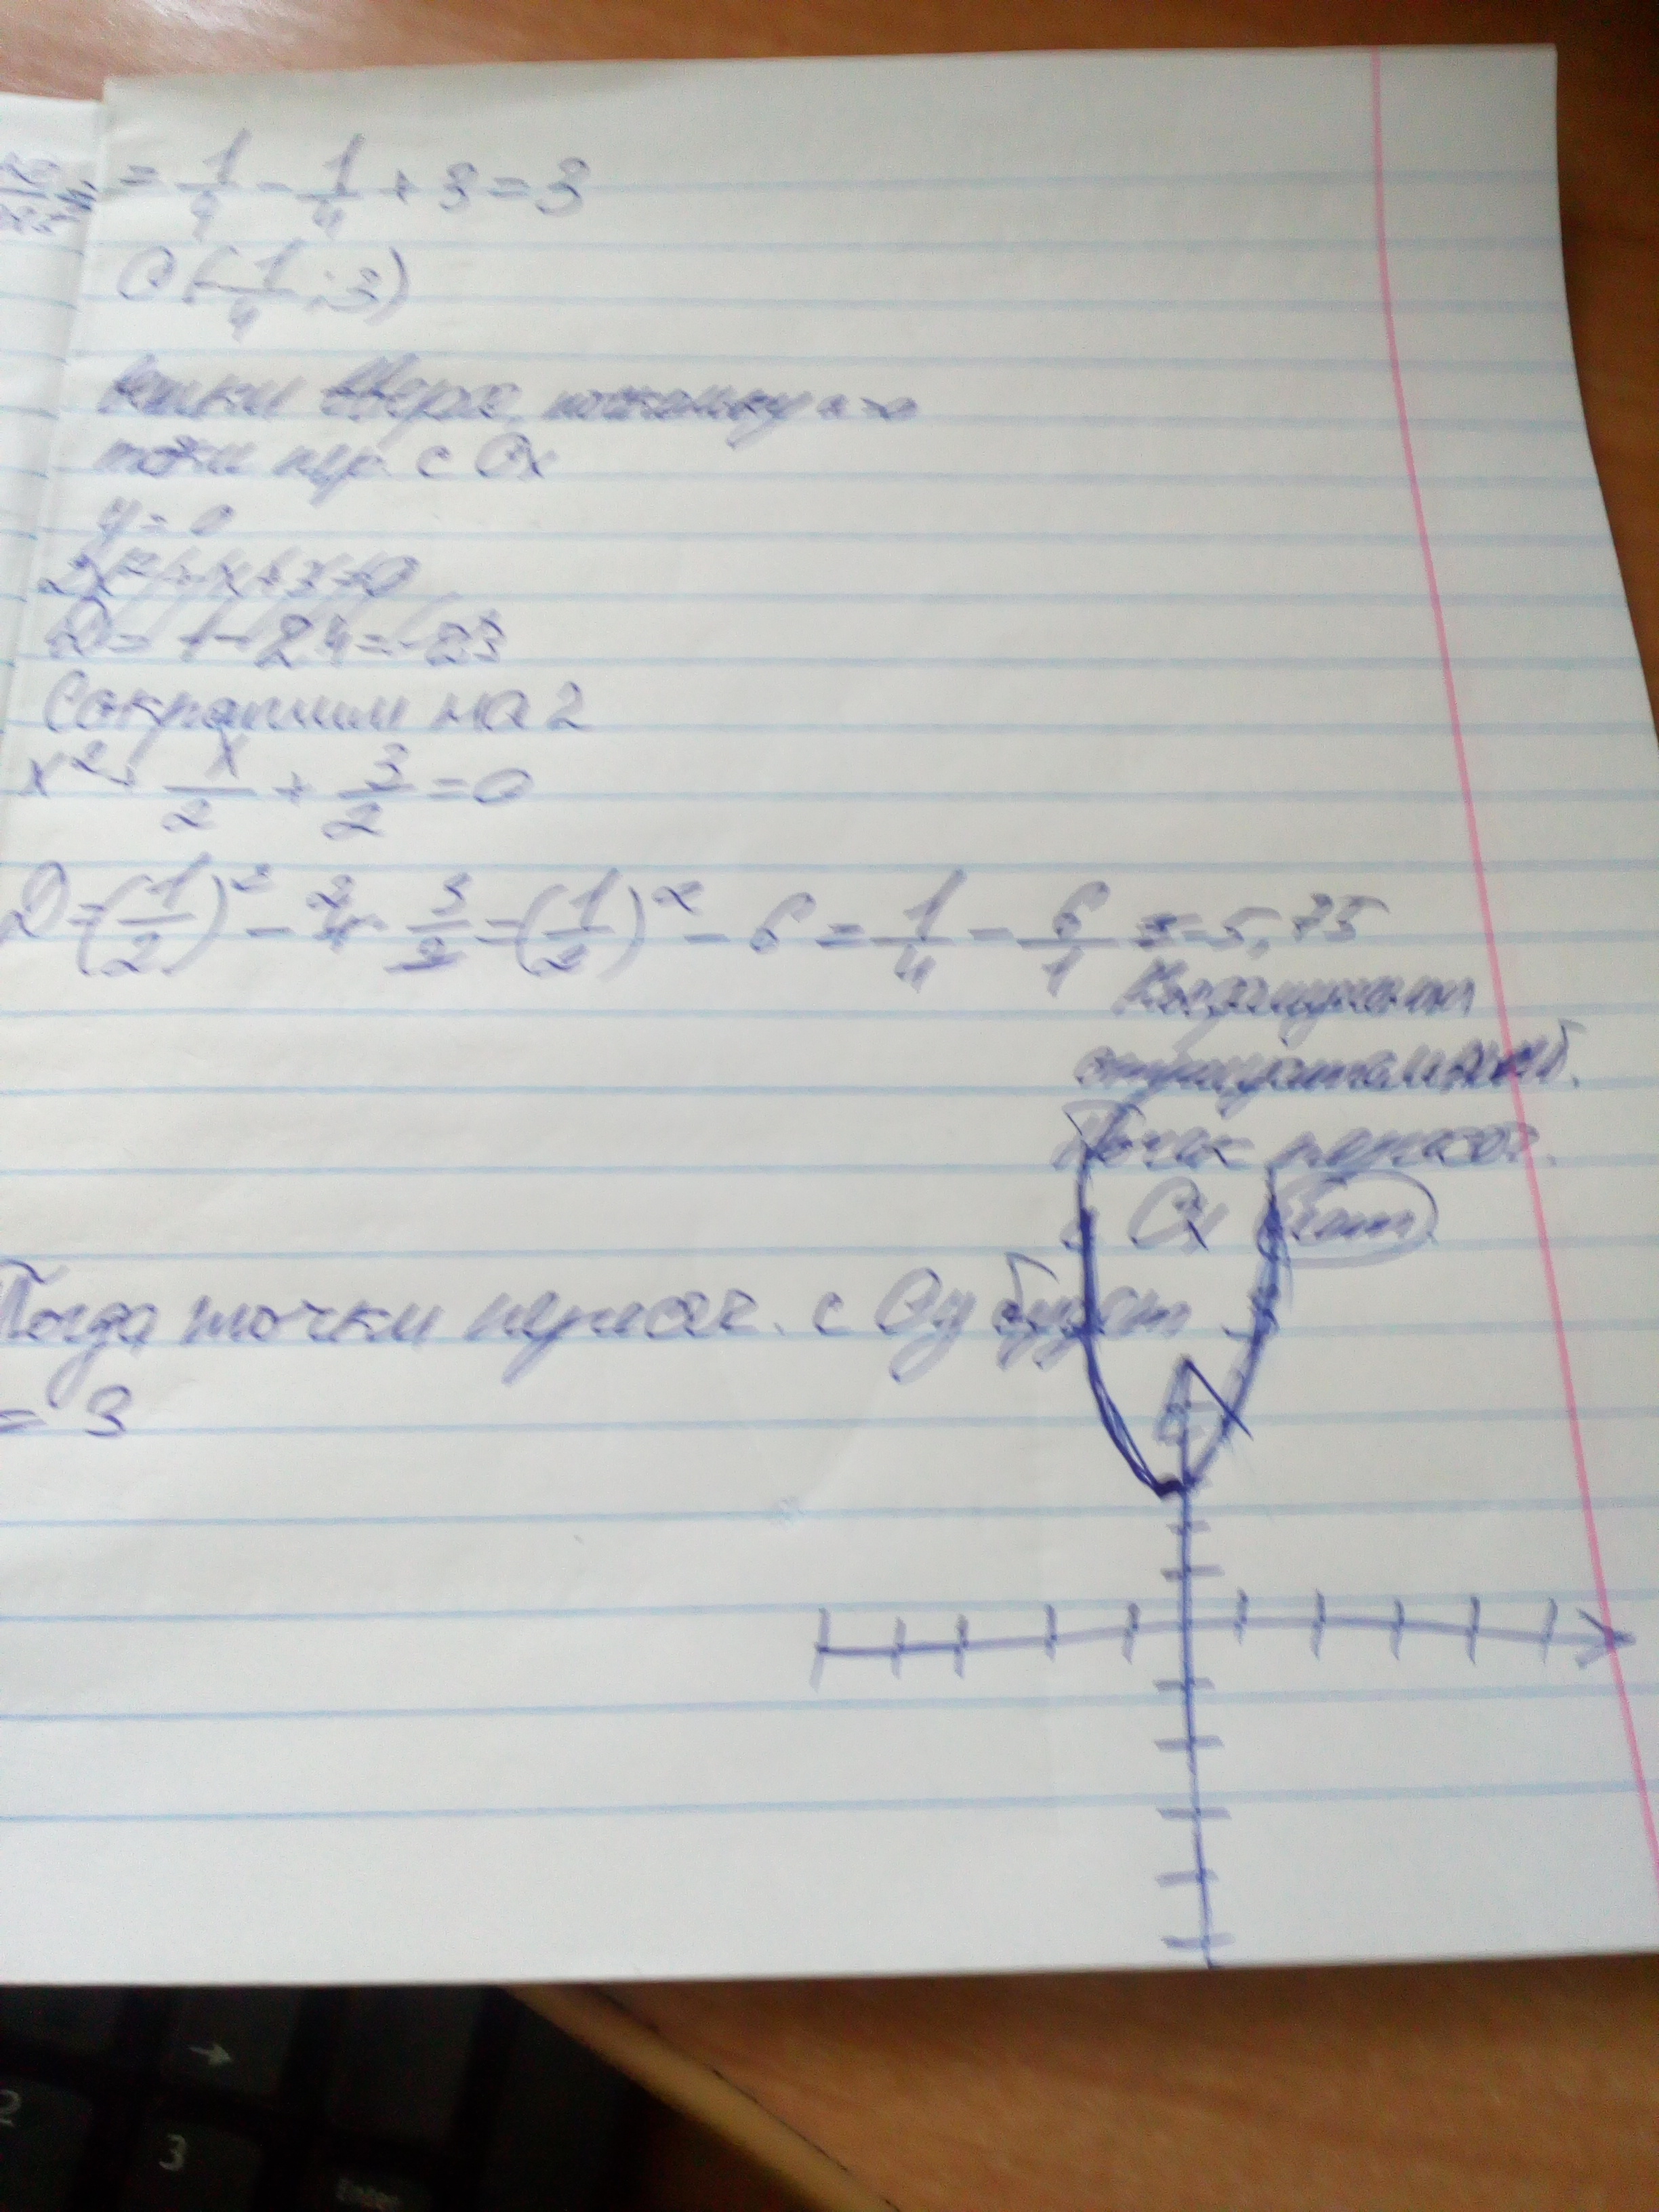 = 1/4 - 1/4 + 3 = 3
О (-1/4 ; 3)
ветки вверх, поскольку a>0
точки пер. с Ox
y = 0
2x² + x + 3 = 0
D = 1 - 24 = -23
Сократим на 2
x² + x/2 + 3/2 = 0
D = (1/2)² - 4 · 3/2 = (1/2)² - 6 = 1/4 - 6/1 = -5,75
отрицательный.
Точек пересеч.
с Ox нет
Тогда точки пересеч. с Oy будет
= 3
→
2
3
Enter